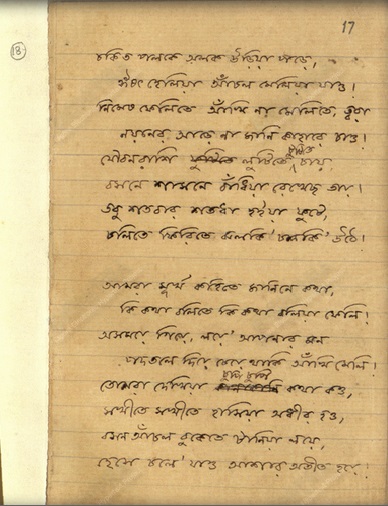 17
13
চকিত পলকে অলক উড়িয়া পড়ে,
ঈষৎ হেলিয়া আঁচল মেলিয়া যাও!
নিমেষ ফেলিতে আঁখি না মেলিতে, ত্বরা
নয়নের আড়ে না জানি কাহারে চাও!
যৌবনরাশি টুটিতে লুটিতে চায়,
বসনে শাসনে বাঁধিয়া রেখেছ তায়!
তবু শতবার শতধা হইয়া ফুটে,
চলিতে ফিরিতে ঝলকি' চলকি' উঠে!
আমরা মূর্খ কহিতে জানিনে কথা,
কি কথা বলিতে কি কথা বলিয়া ফেলি!
অসময়ে গিয়ে, লয়ে' আপনার মন
পদতলে দিয়ে চেয়ে থাকি আঁখি মেলি!
তোমরা দেখিয়া চুপি চুপি কথা কও,
সখীতে সখীতে হাসিয়া অধীর হও,
বসন আঁচল বুকেতে টানিয়া লয়ে,
হেসে চলে' যাও আশার অতীত হয়ে!